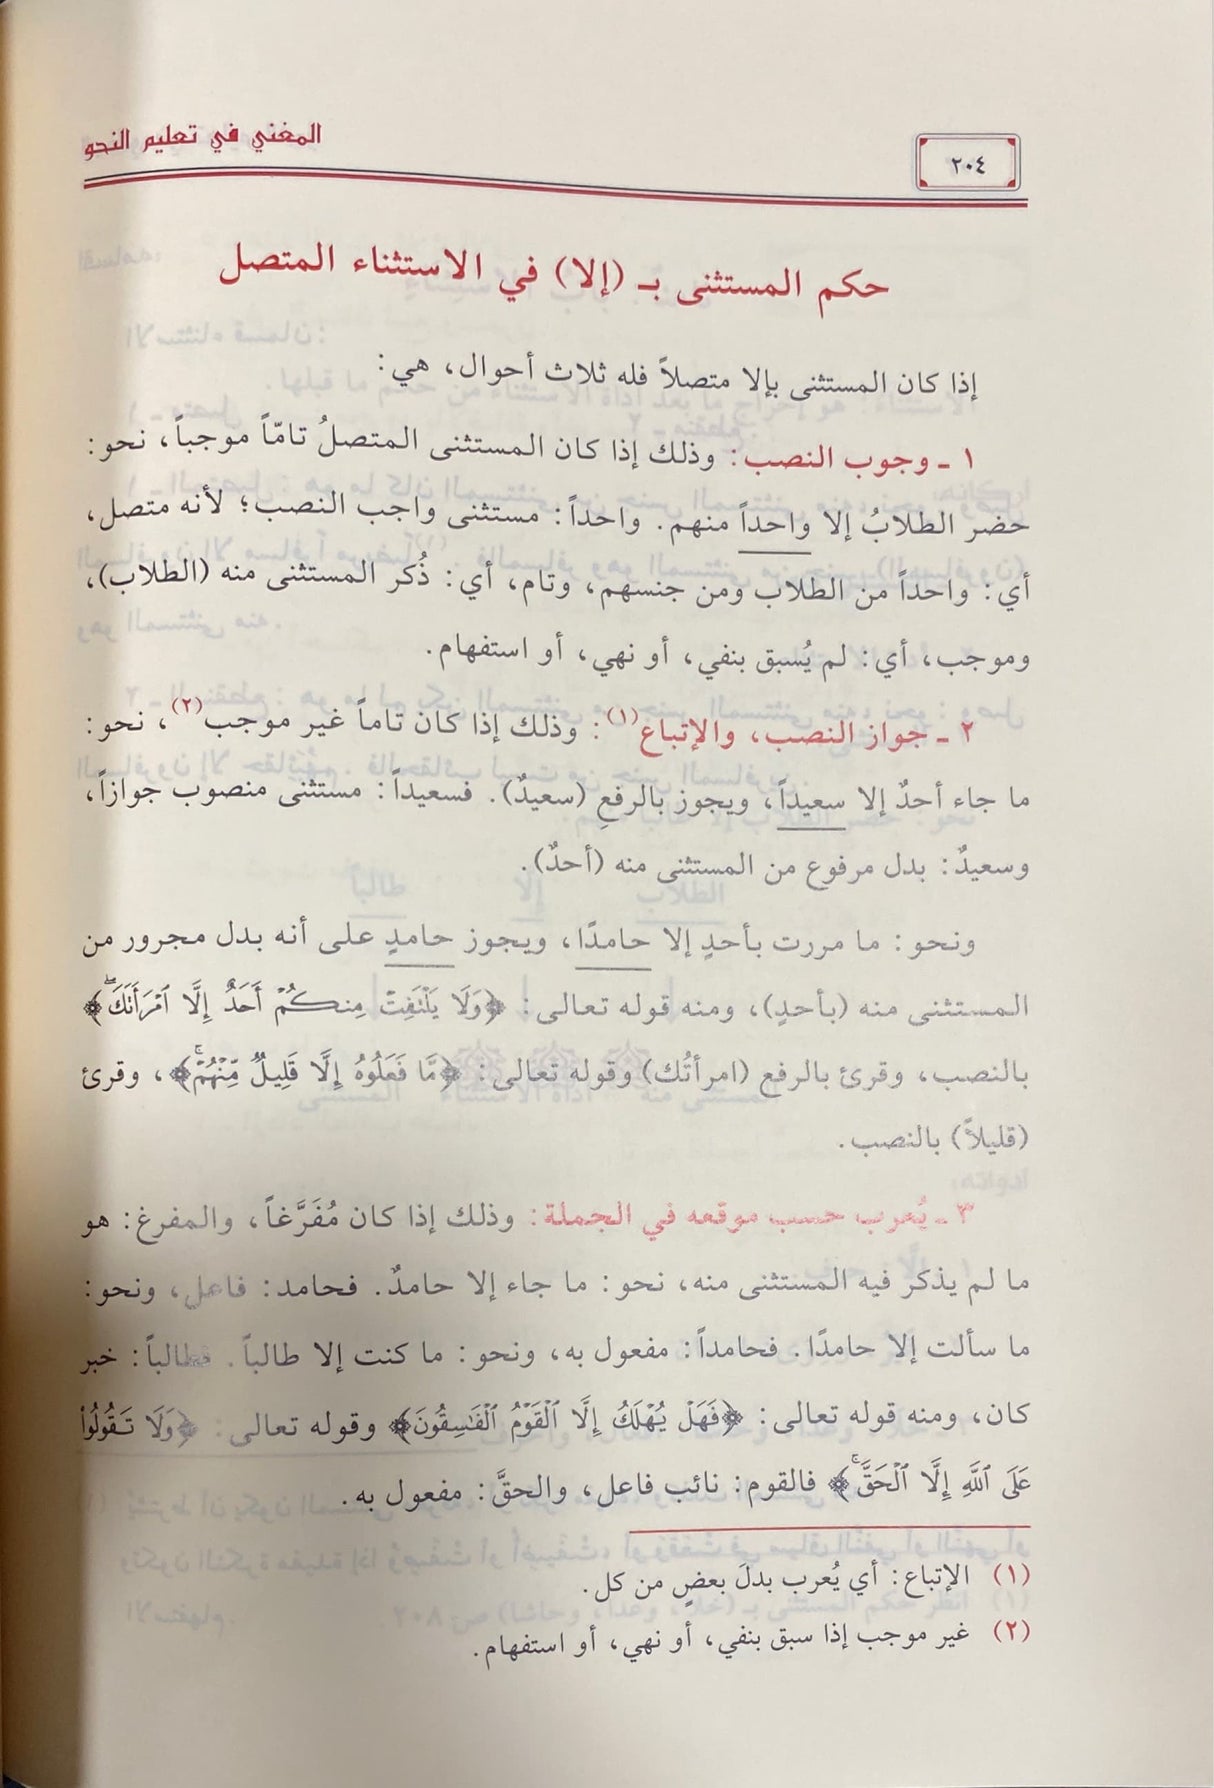 المغني في تعليم النحو
٢٠٤
حكم المستثنى بـ (إلا) في الاستثناء المتصل
إذا كان المستثنى بإلا متصلاً فله ثلاث أحوال، هي:
١ ـ وجوب النصب: وذلك إذا كان المستثنى المتصلُ تامّاً موجباً، نحو:
حضر الطلابُ إلا واحداً منهم. واحداً: مستثنى واجب النصب؛ لأنه متصل،
أي: واحداً من الطلاب ومن جنسهم، وتام، أي: ذُكر المستثنى منه (الطلاب)،
وموجب، أي: لم يُسبق بنفي، أو نهي، أو استفهام.
٢ ـ جواز النصب، والإتباع(١): وذلك إذا كان تاماً غير موجب(٢)، نحو:
ما جاء أحدٌ إلا سعيداً، ويجوز بالرفعِ (سعيدٌ). فسعيداً: مستثنى منصوب جوازاً،
وسعيدٌ: بدل مرفوع من المستثنى منه (أحدٌ).
ونحو: ما مررت بأحدٍ إلا حامدًا، ويجوز حامدٍ على أنه بدل مجرور من
المستثنى منه (بأحدٍ)، ومنه قوله تعالى: ﴿وَلَا يَلْتَفِتْ مِنكُمْ أَحَدٌ إِلَّا ٱمْرَأَتَكَۖ﴾
بالنصب، وقرئ بالرفع (امرأتُك) وقوله تعالى: ﴿مَّا فَعَلُوهُ إِلَّا قَلِيلٌ مِّنْهُمْۚ﴾، وقرئ
(قليلاً) بالنصب.
٣ ـ يُعرب حسب موقعه في الجملة: وذلك إذا كان مُفَرَّغاً، والمفرغ: هو
ما لم يذكر فيه المستثنى منه، نحو: ما جاء إلا حامدٌ. فحامد: فاعل، ونحو:
ما سألت إلا حامدًا. فحامداً: مفعول به، ونحو: ما كنت إلا طالباً. فطالباً: خبر
كان، ومنه قوله تعالى: ﴿فَهَلْ يُهْلَكُ إِلَّا ٱلْقَوْمُ ٱلْفَٰسِقُونَ﴾ وقوله تعالى: ﴿وَلَا تَقُولُوا۟
عَلَى ٱللَّهِ إِلَّا ٱلْحَقَّۚ﴾ فالقوم: نائب فاعل، والحقَّ: مفعول به.
(١) الإتباع: أي يُعرب بدلَ بعضٍ من كل.
(٢) غير موجب إذا سبق بنفي، أو نهي، أو استفهام.